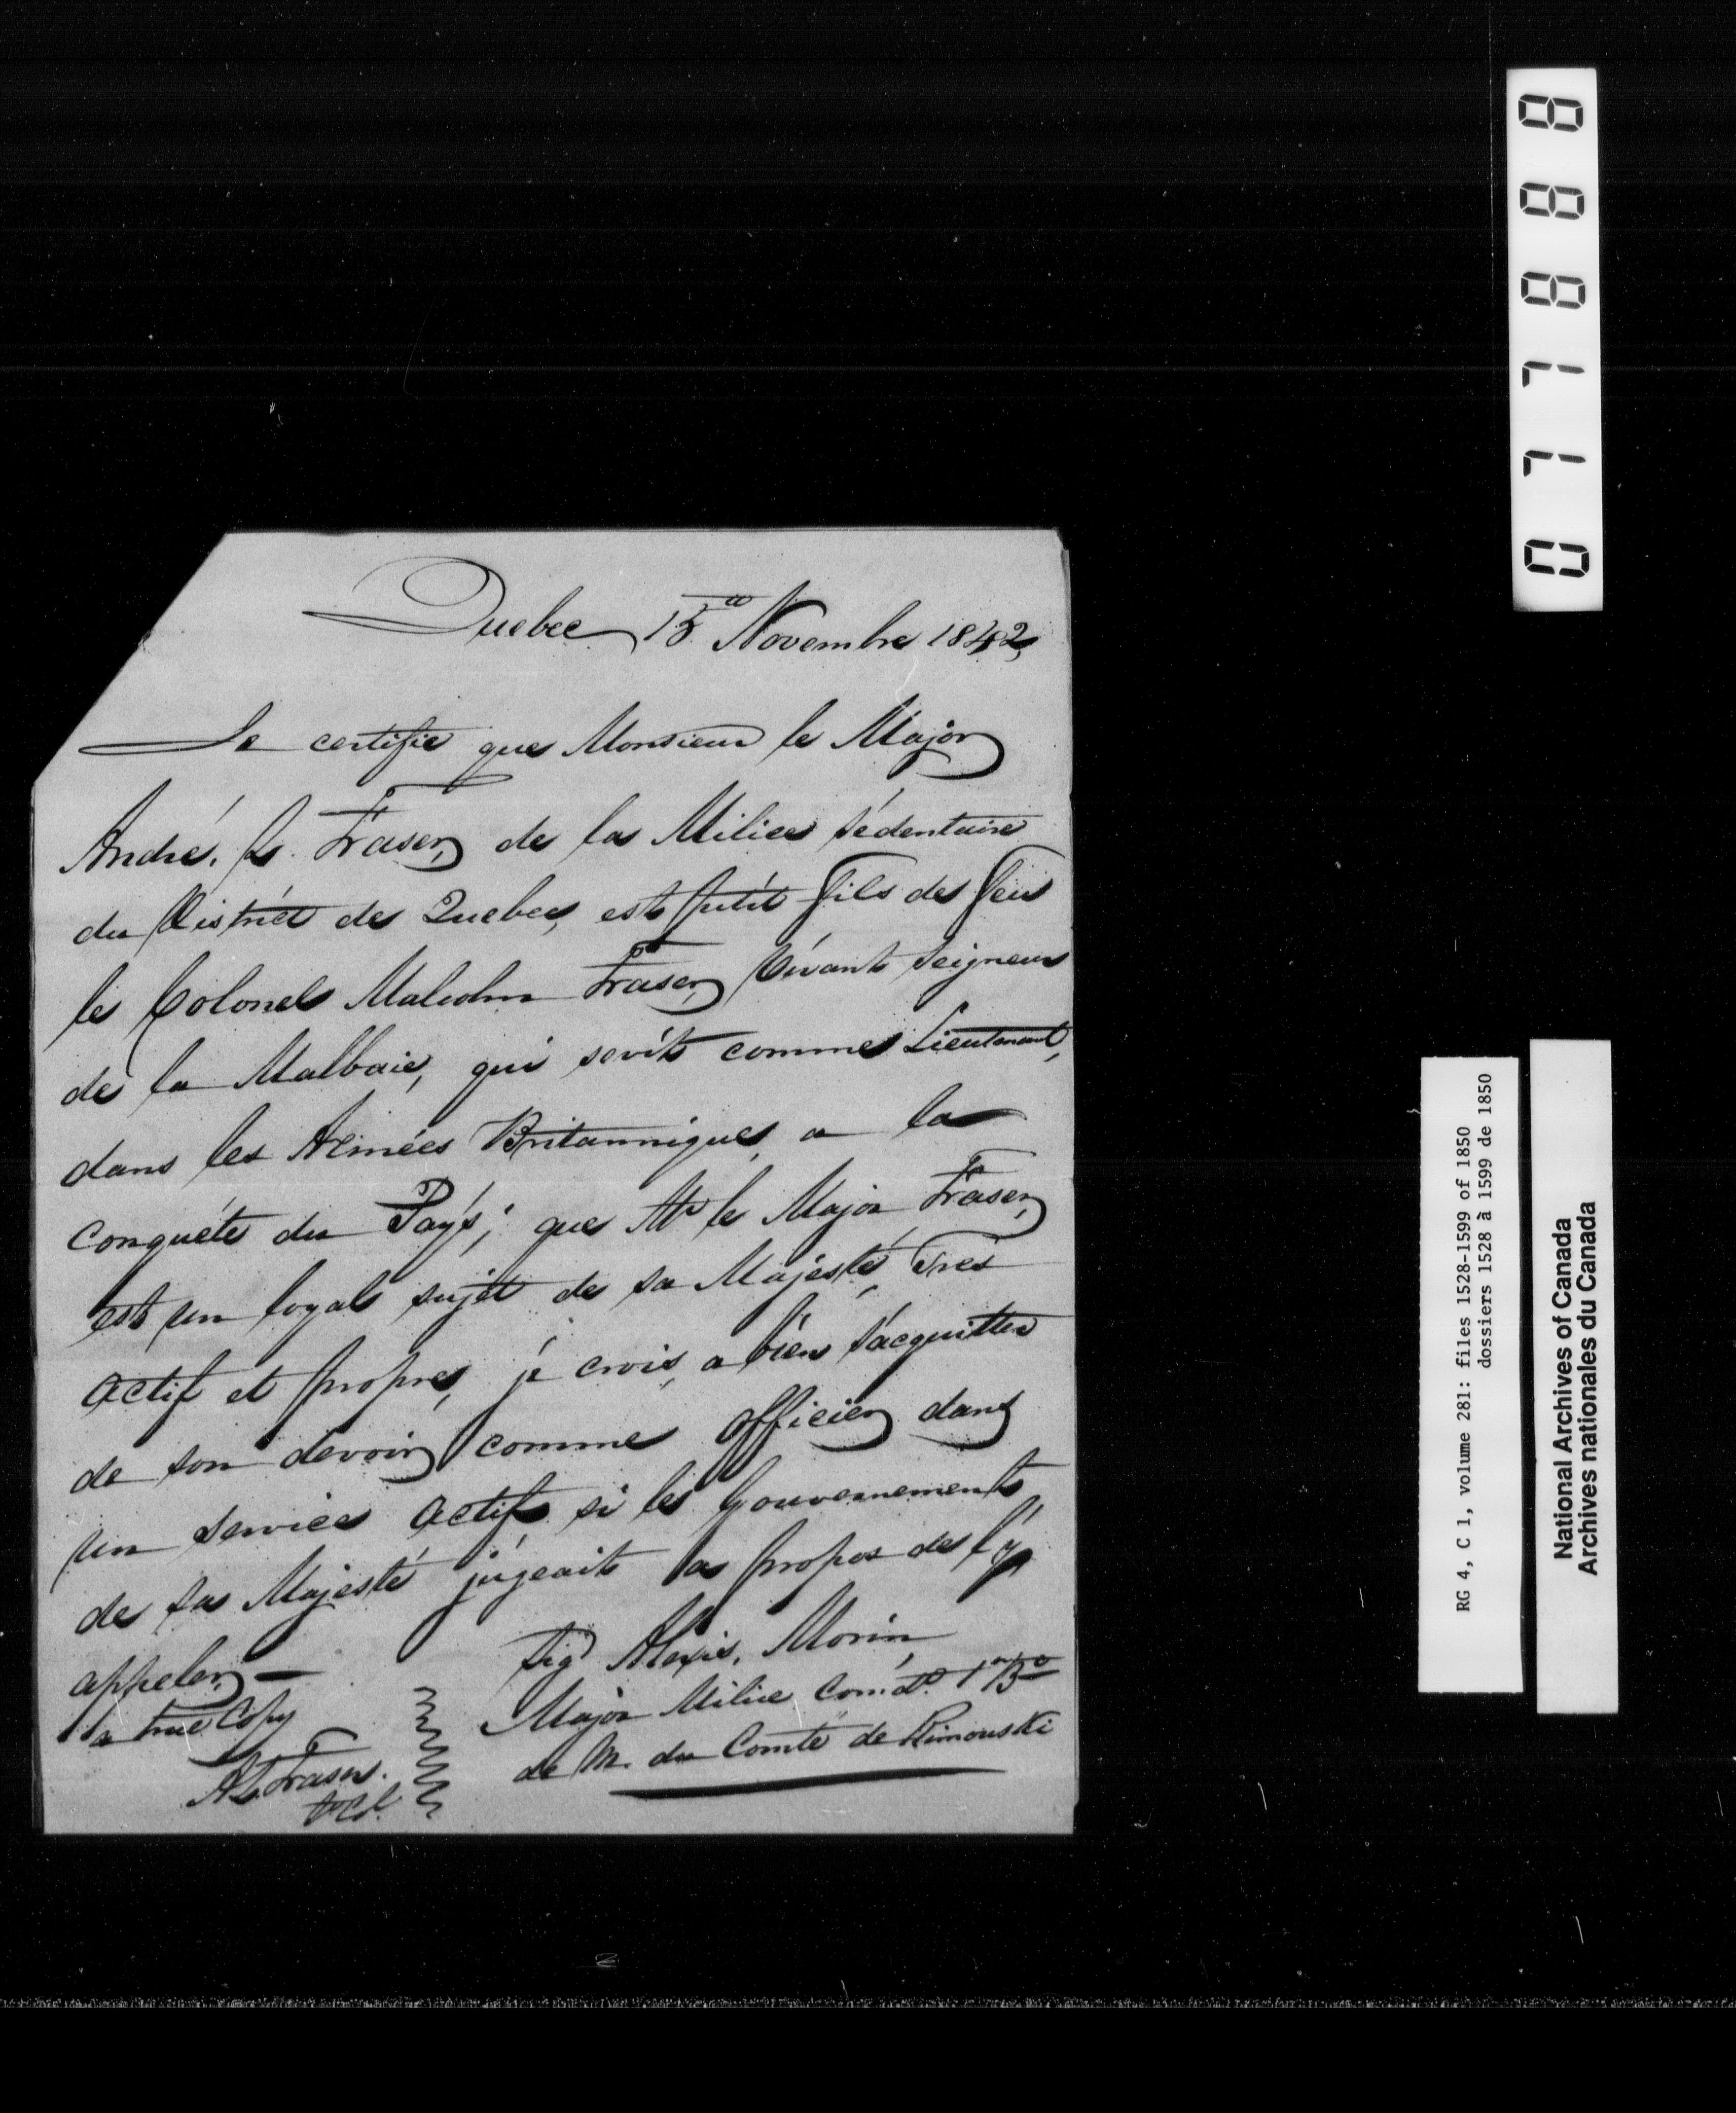 Quebec 15 Novembre 1842
Je certifie que Monsieur le Major
André. L. Fraser, de la Milice sédentaire
du District de Quebec, est petit fils de feu
le Colonel Malcolm Fraser, Vivant Seigneur
de la Malbaie, qui sevit comme Lieutenant,
dans les Armées Britanniques, a la
conquéte du Pays; que Mr le Major Fraser,
est un loyal sujet de sa Majesté, Tres
actif et propre, je crois, a bien s'acquitter
de son devoir comme officier dans
un service actif, si le Gouvernement
de sa Majesté jugeait a propos de l'y
appeler,—
Sigd Alexis. Morin,
Major Milice Comdt. 1er Bn
de M. du Comté de Rimouski
a true Copy
AL Fraser.
077888
RG 4, C 1, volume 281: files 1528-1599 of 1850
dossiers 1528 à 1599 de 1850
National Archives of Canada
Archives nationales du Canada